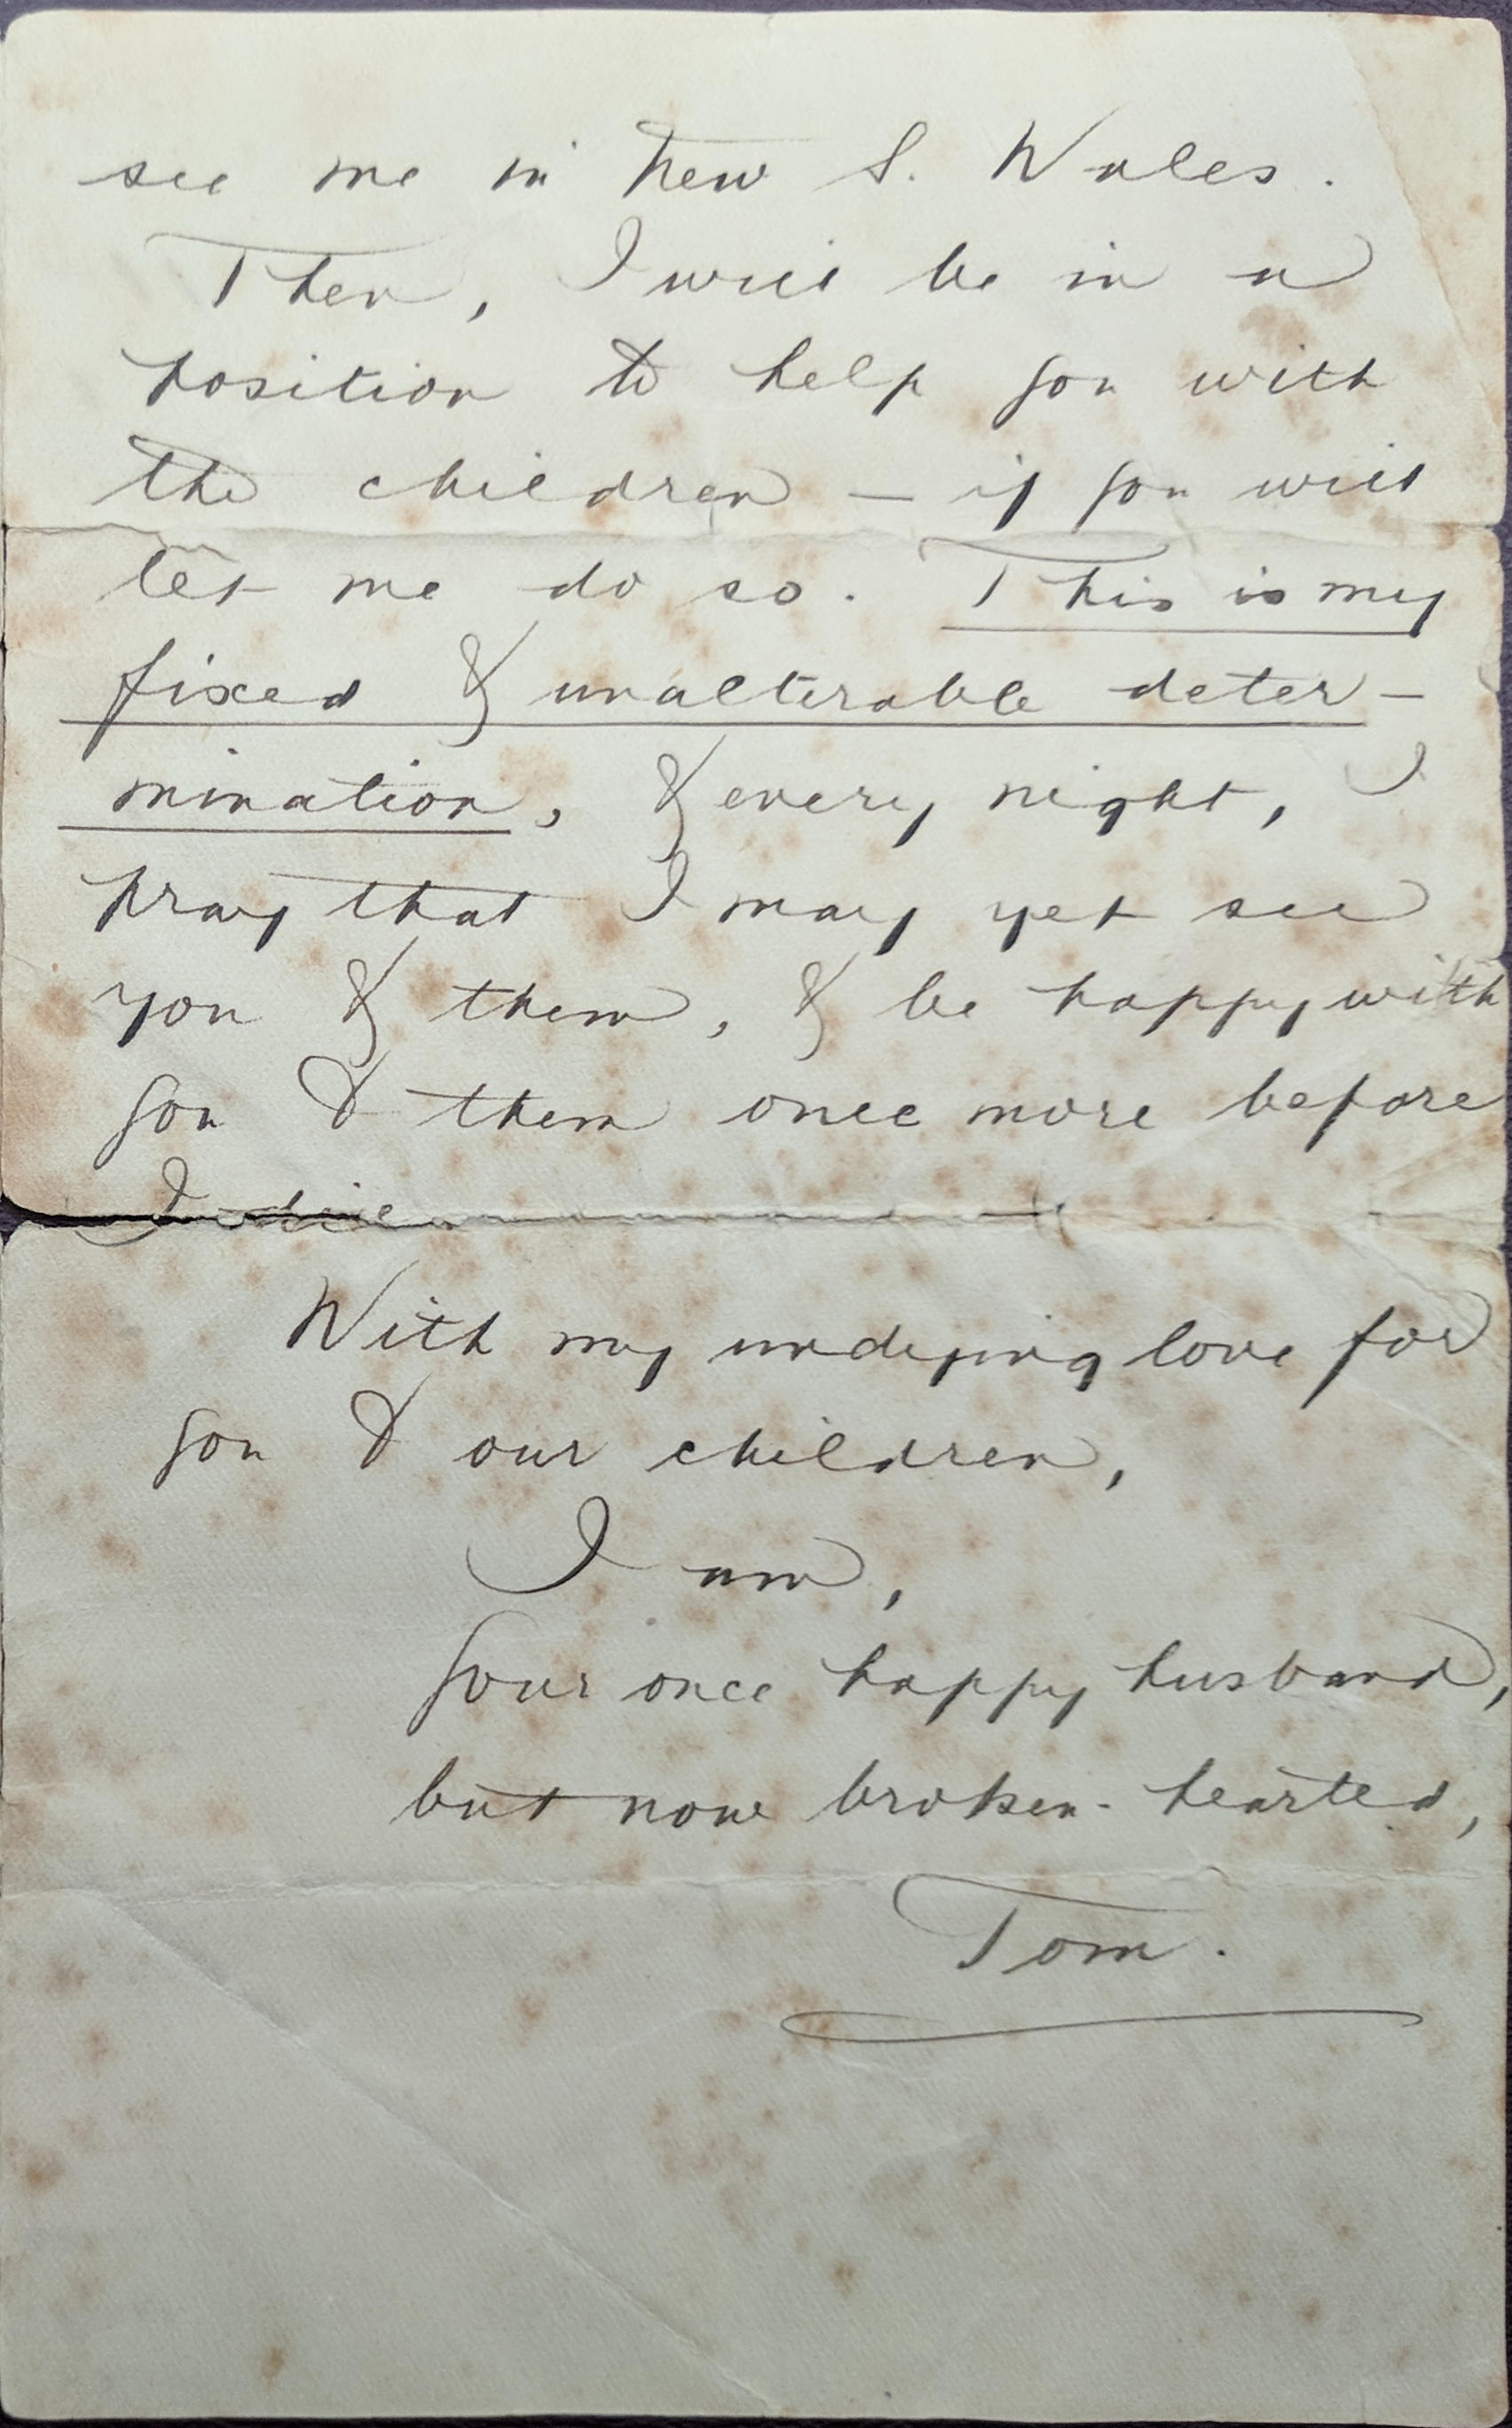 see me in New S. Wales.
Then, I will be in a
position to help you with
the children — if you will
let me do so. This is my
fixed & unalterable deter-
mination, & every night, I
pray that I may yet see
you & them, & be happy with
you & them once more before
I die
With my undying love for
you & our children,
I am,
Your once happy husband,
but now broken-hearted,
Tom.